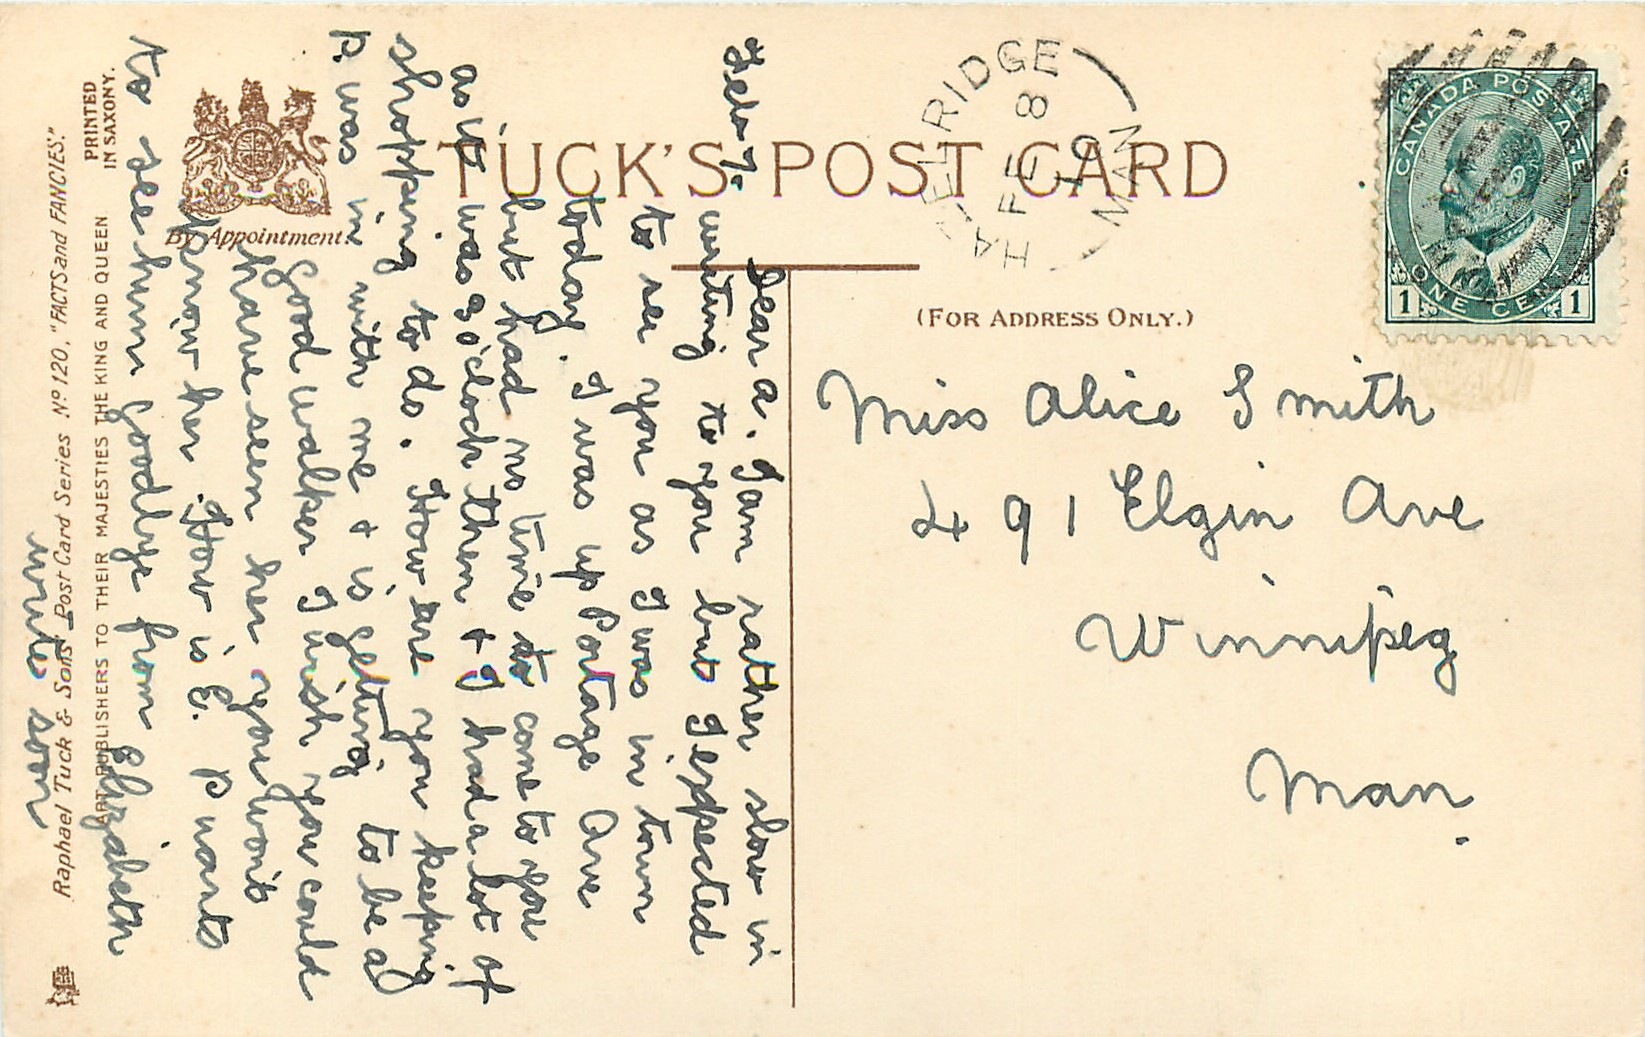 TUCK'S POST CARD
By Appointment.
(FOR ADDRESS ONLY.)
CANADA POSTAGE
1 ONE CENT 1
HAZELRIDGE
FE 8
10
MAN
Miss Alice Smith
491 Elgin Ave
Winnipeg
Man.
Feb 7.
Dear A. I am rather slow in
writing to you but I expected
to see you as I was in town
today. I was up Portage Ave
but had no time to come to you
as it was 3 o'clock then & I had a lot of
shopping to do. How are you keeping
P. was in with me & is getting to be a
good walker I wish you could
have seen her you won't
know her. How is E. P wants
to see him goodbye from Elizabeth
write soon
PRINTED
IN SAXONY.
ART PUBLISHERS TO THEIR MAJESTIES THE KING AND QUEEN
Raphael Tuck & Sons' Post Card Series Nº 120, "FACTS and FANCIES."